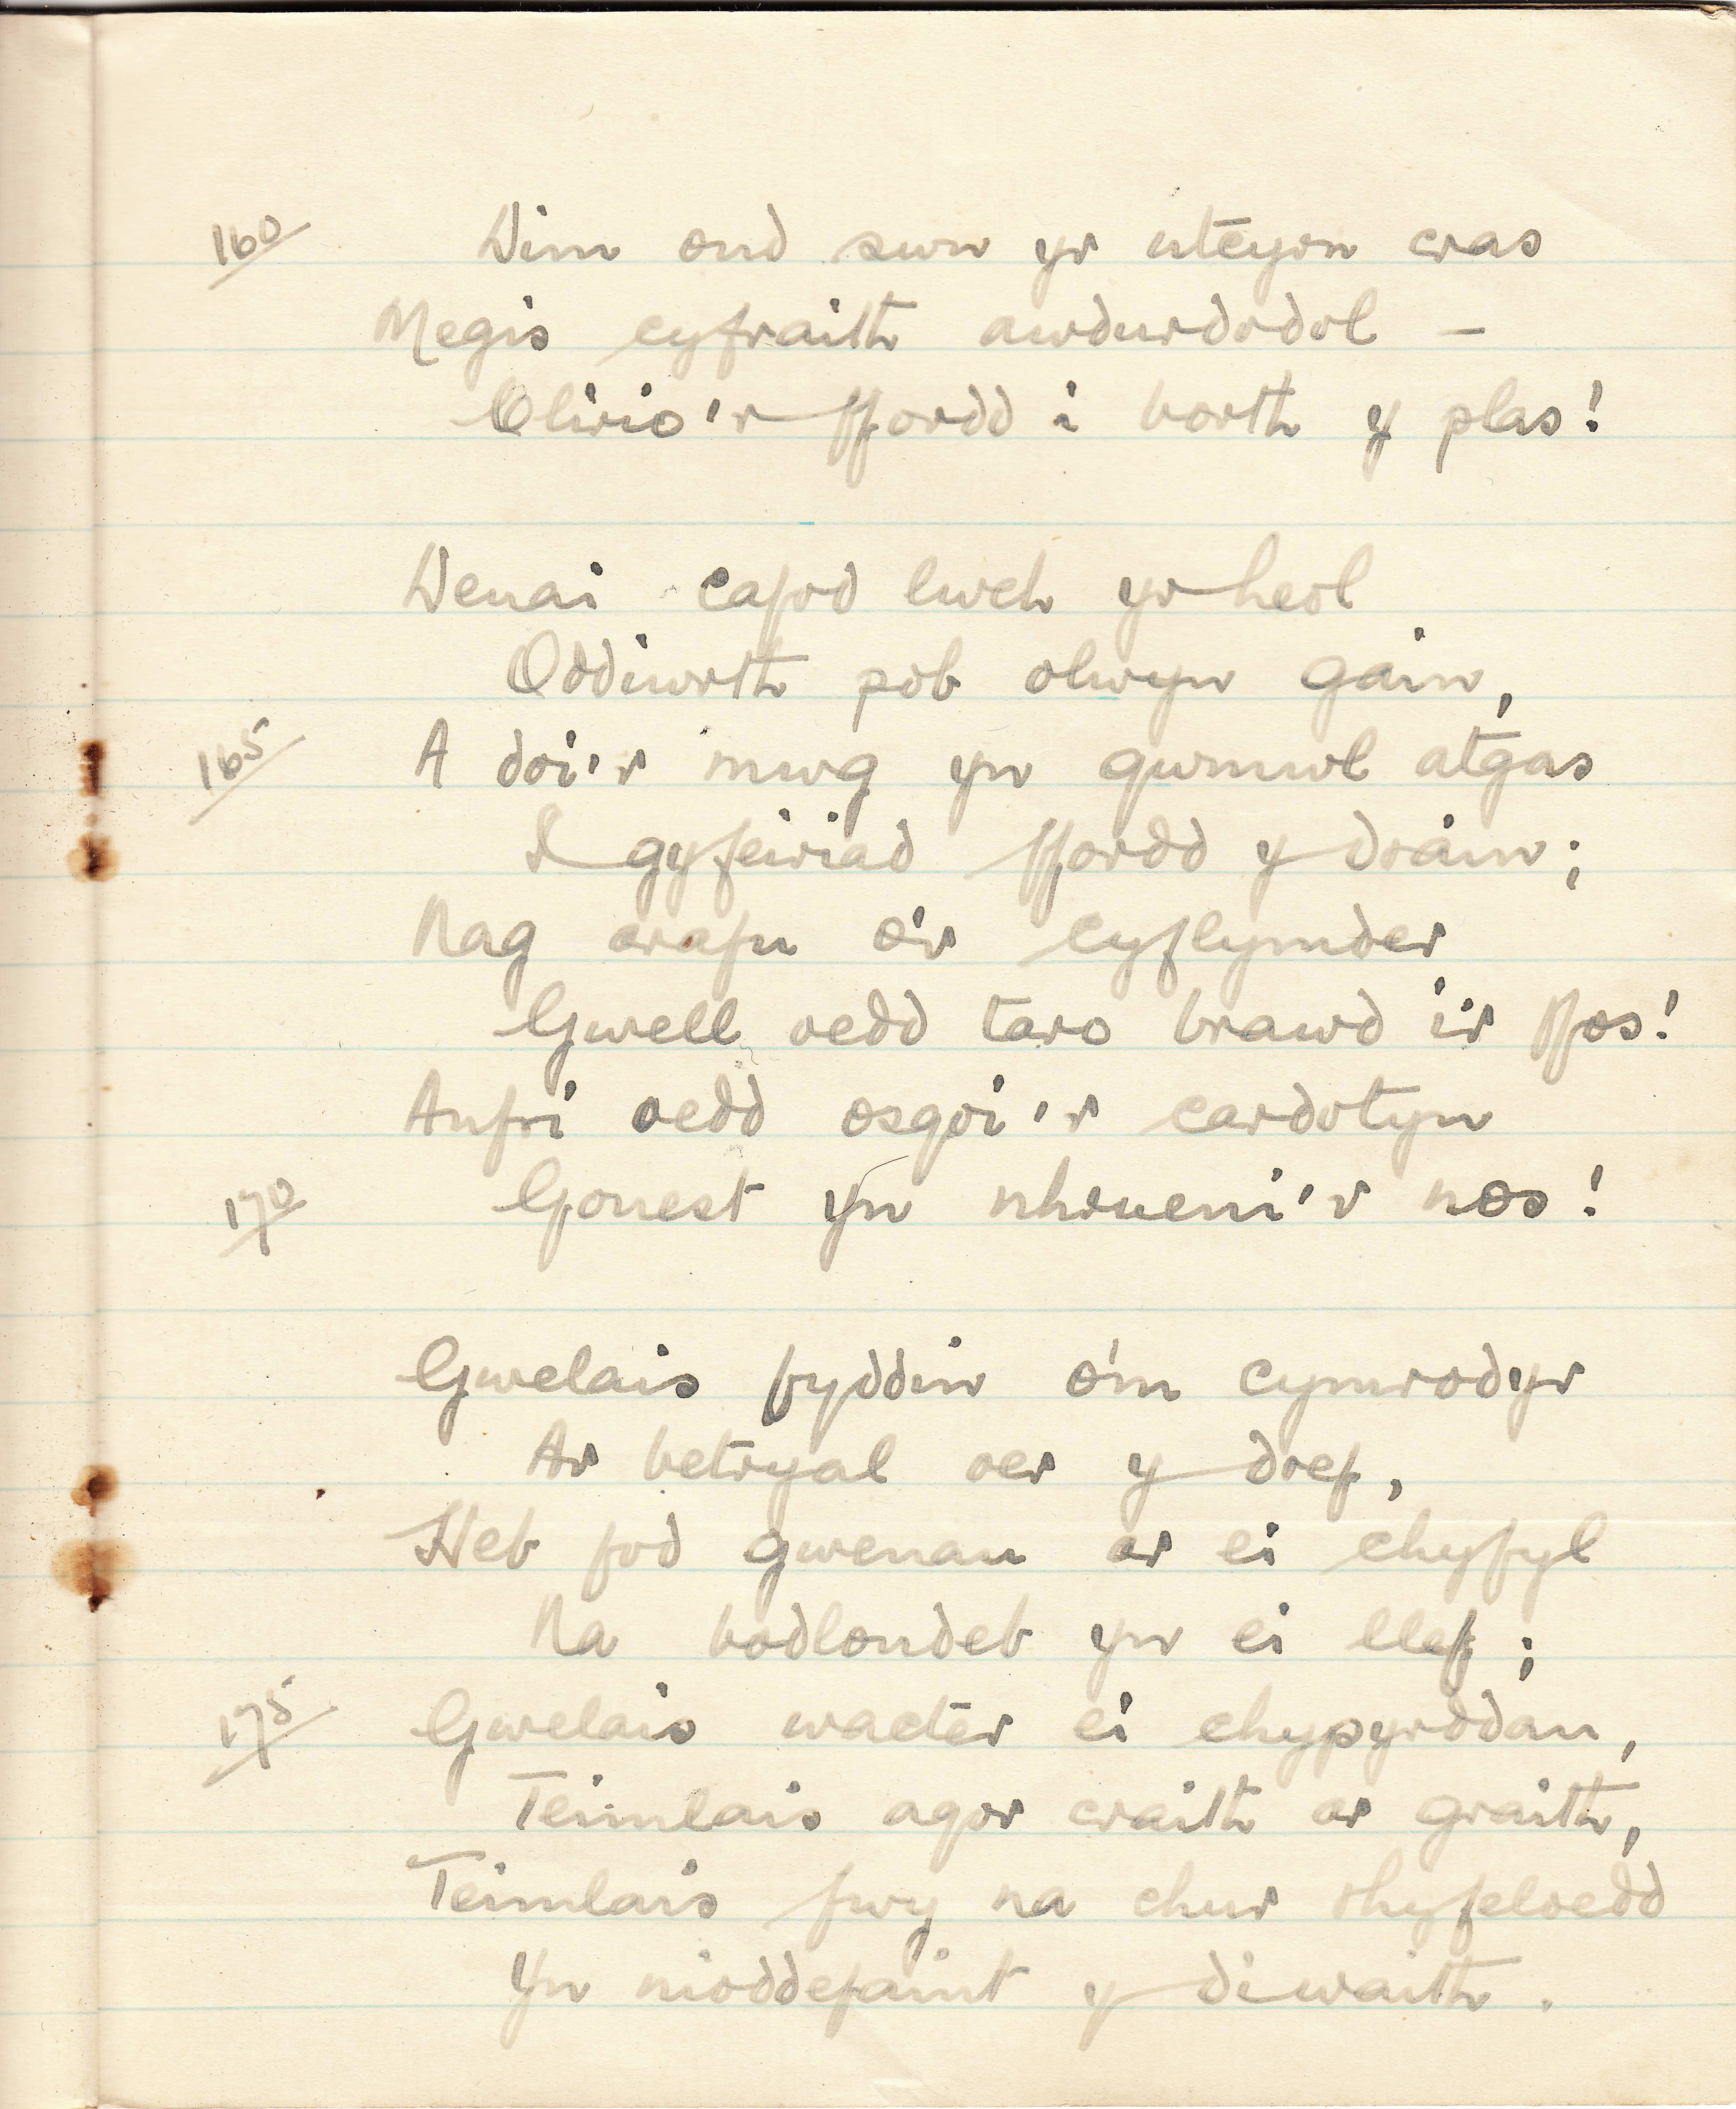 160 Dim ond swn yr utcyrn cras
Megis cyfraith awdurdodol —
Clirio'r ffordd i borth y plas!
Denai cafod lwch yr heol
Oddiwrth pob olwyn gain,
165 A doi'r mwg yn gwmwl atgas
I gyfeiriad ffordd y drain;
Nag arafu o'r cyflymder
Gwell oedd taro brawd i'r ffos!
Anfri oedd osgoi'r cardotyn
170 Gonest yn nhrueni'r nos!
Gwelais fyddin o'm cymrodyr
Ar betryal oer y dref,
Heb fod gwenau ar ei chyfyl
Na bodlondeb yn ei llef;
175 Gwelais wacter ei chypyrddau,
Teimlais agor craith ar graith,
Teimlais fwy na chur rhyfeloedd
Yn nioddefaint y diwaith.